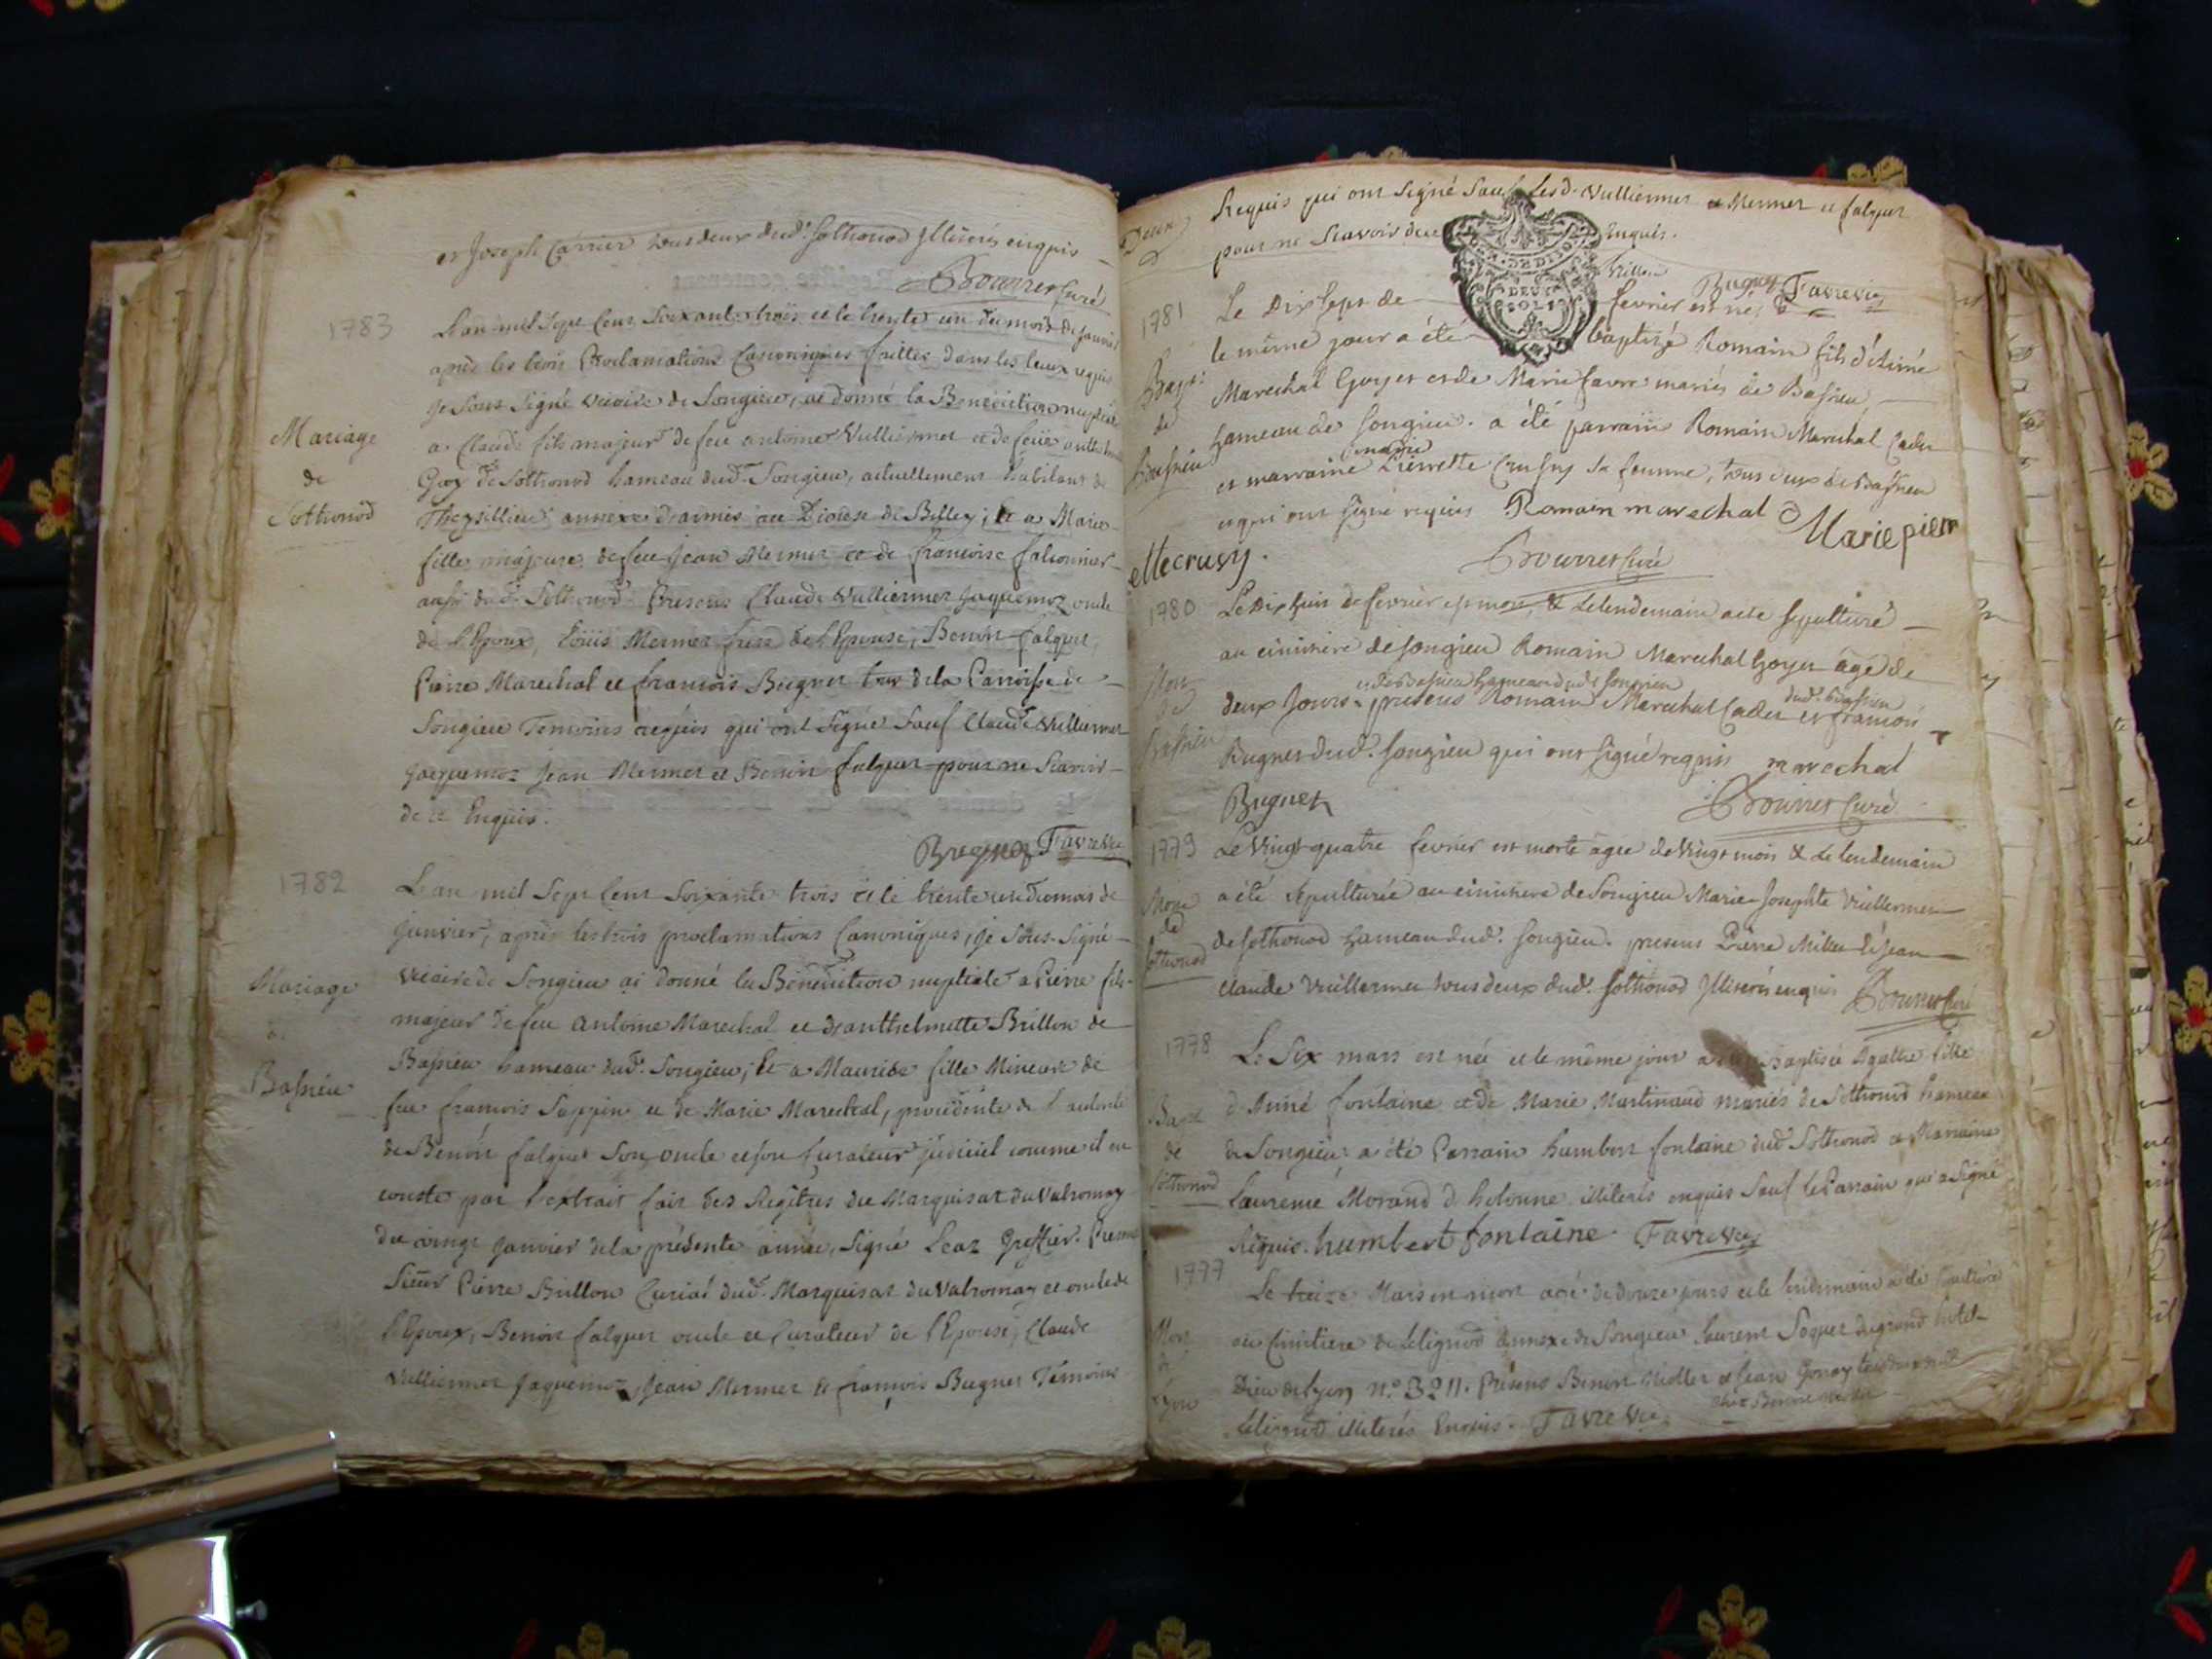 et Joseph Carrier tous deux dud. Sothonod Illiterés enquis
Bourret Curé
1783
L'an mil Sept Cent Soixante trois et le trente un du mois de Janvier
après les trois Proclamations Canoniques faittes dans les lieux requis
Je Sous Signé vicaire de Songieu, ai donné la Benediction nuptiale
Mariage
a Claude fils majeur de feu antoine Vulliermet et de feüe
de
Goy de Sothonod hameau dud. Songieu, actuellement habitant de
Sothonod
annexe d'aimés au Diocese de Belley; Et a Marie
fille majeure de feu Jean Mermet et de francoise falconnier
aussi dud. Sothonod. Presens Claude Vulliermet Jaquemoz oncle
de l'Epoux, Loüis Mermet frere de l'Epouse, Benoit falquet,
Pierre Marechal et francois Bugnet tous de la Parroisse de
Songieu Temoins requis qui ont Signé Sauf Claude Vulliermet
Jaquemoz Jean Mermet et Benoit falquet pour ne Scavoir
de ce Enquis.
Bugnet Favre Vic
1782
L'an mil Sept Cent Soixante trois et le trente un du mois de
Janvier, après les trois proclamations Canoniques, je Sous-Signé
vicaire de Songieu ai donné la Bénédiction nuptiale a Pierre fils
Mariage
majeur de feu antoine Marechal et d'anthelmette Brillon de
de
Bassieu hameau dud. Songieu; Et a Maurise fille Mineure de
Bassieu
feu francois Sappin et de Marie Marechal, procédente de l'autorité
de Benoit falquet Son oncle et son Curateur judiciel comme il en
conste par l'extrait fait des Regîtres du Marquisat du Valromay
du vingt Janvier de la présente année, Signé Leaz Greffier. Presens
Sieur Pierre Brillon Curial dud. Marquisat du Valromay et oncle de
l'Epoux, Benoit falquet oncle et Curateur de l'Epouse, Claude
Vulliermet Jaquemoz, Jean Mermet et francois Bugnet Temoins
Requis qui ont Signé Sauf Lesd. Vulliermet et Mermet et falquet
Deux
pour ne Scavoir de ce Enquis.
DEUX
SOLS
Brillon Bugnet Favre vic
1781
Le Dix Sept de fevrier est né, et
le même jour a été baptisé Romain fils d'Aimé
Bapt.
Marechal Goyet et de Marie favre mariés de Bassieu
de
hameau de Songieu. a été parrain Romain Marechal Cadet
Bassieu
marie
et marraine Pierrette Crussy sa femme, tous deux de Bassieu
et qui ont signé requis Romain marechal Marie pierr
ettecrusy.
Bourret Curé
1780
Le Dix huit de fevrier est mort, & Le lendemain a été sepulturé
au cimitiere de songieu Romain Marechal Goyet âgé de
Mort
et de Bassieu hameau dud. songieu
dud. Bassieu
de
deux Jours. presens Romain Marechal Cadet et francois
Bassieu
Bugnet dud. Songieu qui ont signé requis marechal
Bugnet
Bourret Curé
1779
Le Vingt quatre fevrier est morte agée de Vingt mois & Le lendemain
Morte
a été sepulturée au cimitiere de Songieu Marie Josephte Vuillermet
de
de Sothonod hameau dud. songieu. presens Pierre Millet & Jean
Sothonod
claude Vuillermet tous deux dud. Sothonod Illiterés enquis Bourret Curé
1778
Le Six mars est née et le même jour a été Baptisée Agathe fille
Bapt.
d'Aimé fontaine et de Marie Martinaud mariés de Sothonod hameau
de
de Songieu: a été Parrain humbert fontaine dud. Sothonod et Marraine
Sothonod
Laurence Morand d'hotonne illiterés enquis Sauf le Parrain qui a Signé
Requis. humbert fontaine Favre Vic
1777
Le treize Mars est mort agé de douze jours et le lendemain a été Sepulturé
Mort
au Cimitiere de Lilignod annexe de Songieu Laurent Poquet du grand hotel-
de
Dieu de Lyon n.º 3211. Présens Benoit Miollet et Jean
Lyon
Lilignod illiterés Enquis. Favre Vic.